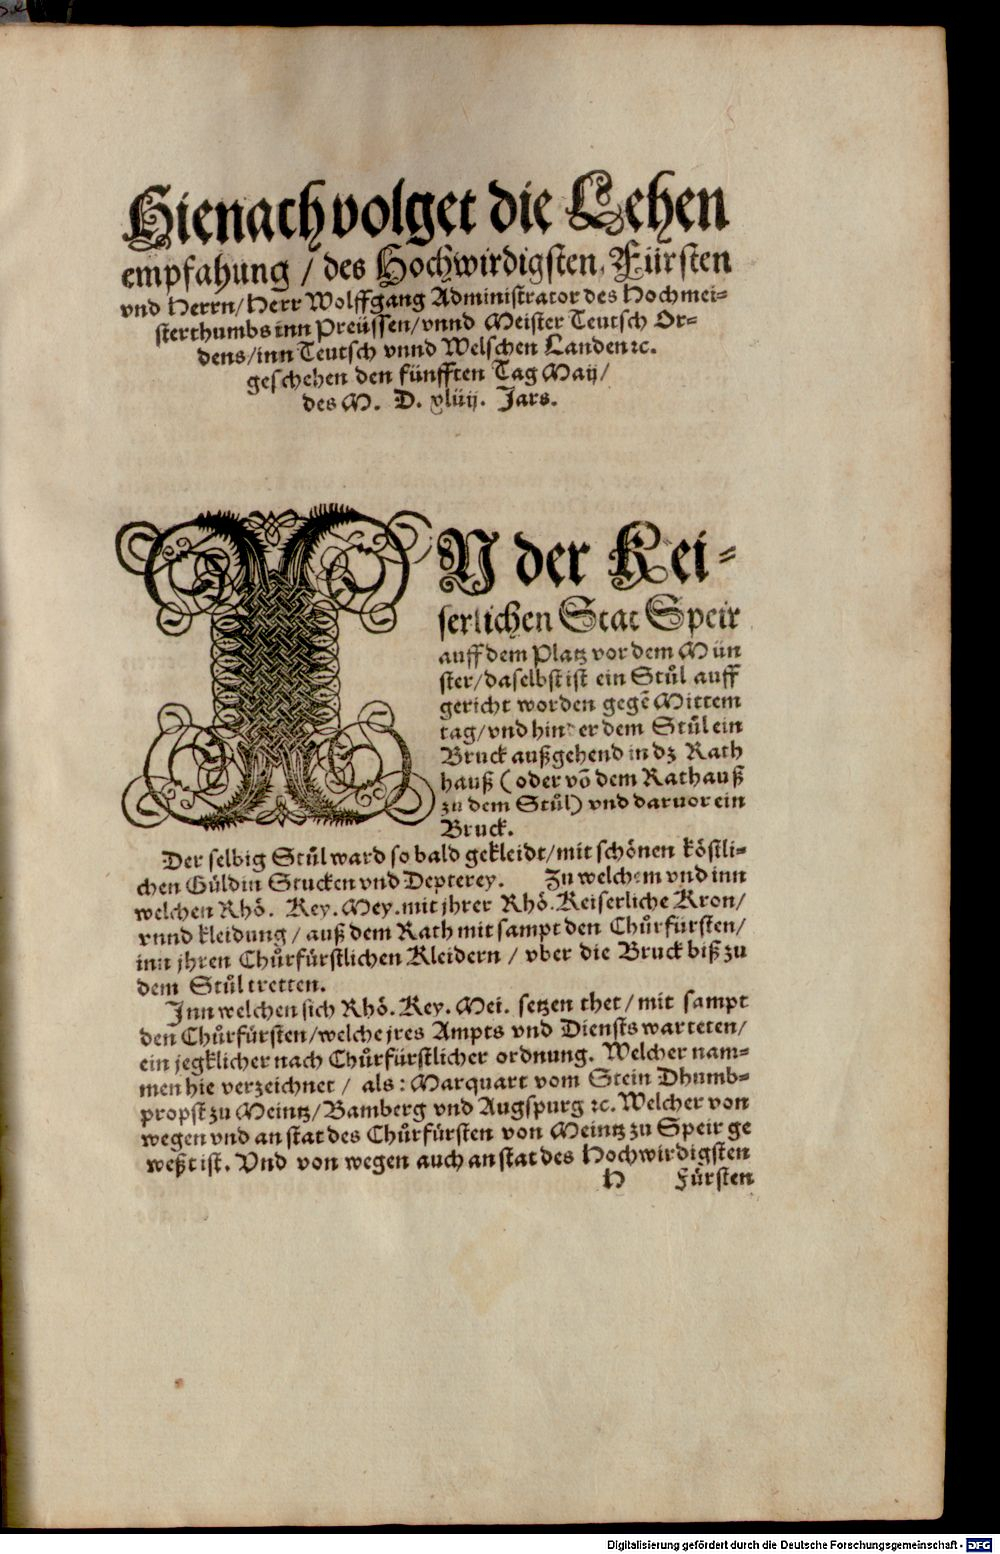 Hienach volget die Lehen
empfahung / des Hochwirdigsten, Fürsten
vnd Herrn/ Herr Wolffgang Administrator des Hochmei-
sterthumbs inn Preüssen/ vnnd Meister Teutsch Or-
dens/ inn Teutsch vnnd Welschen Landen ꝛc.
geschehen den fünfften Tag Maij/
des M. D. xliiij. Jars.
IN der Kei-
serlichen Stat Speir
auff dem Platz vor dem Mün
ster/ daselbst ist ein Stůl auff
gericht worden gegẽ Mittem
tag/ vnd hinder dem Stůl ein
Bruck außgehend in dz Rath
hauß (oder võ dem Rathauß
zu dem Stůl) vnd daruor ein
Bruck.
Der selbig Stůl ward so bald gekleidt/ mit schönen köstli-
chen Güldin Stucken vnd Depterey. Zu welchem vnd inn
welchen Rhö. Key. Mey. mit jhrer Rhö. Keiserliche Kron/
vnnd kleidung / auß dem Rath mit sampt den Chůrfürsten/
inn jhren Chůrfürstlichen Kleidern / vber die Bruck biß zu
dem Stůl tretten.
Inn welchen sich Rhö. Key. Mei. setzen thet / mit sampt
den Chůrfürsten/ welche jres Ampts vnd Diensts warteten/
ein jegklicher nach Chůrfürstlicher ordnung. Welcher nam-
men hie verzeichnet / als: Marquart vom Stein Dhumb-
propst zu Meintz/ Bamberg vnd Augspurg ꝛc. Welcher von
wegen vnd an stat des Chůrfürsten von Meintz zu Speir ge
weßt ist. Vnd von wegen auch an stat des Hochwirdigsten
H Fürsten
Digitalisierung gefördert durch die Deutsche Forschungsgemeinschaft - DFG